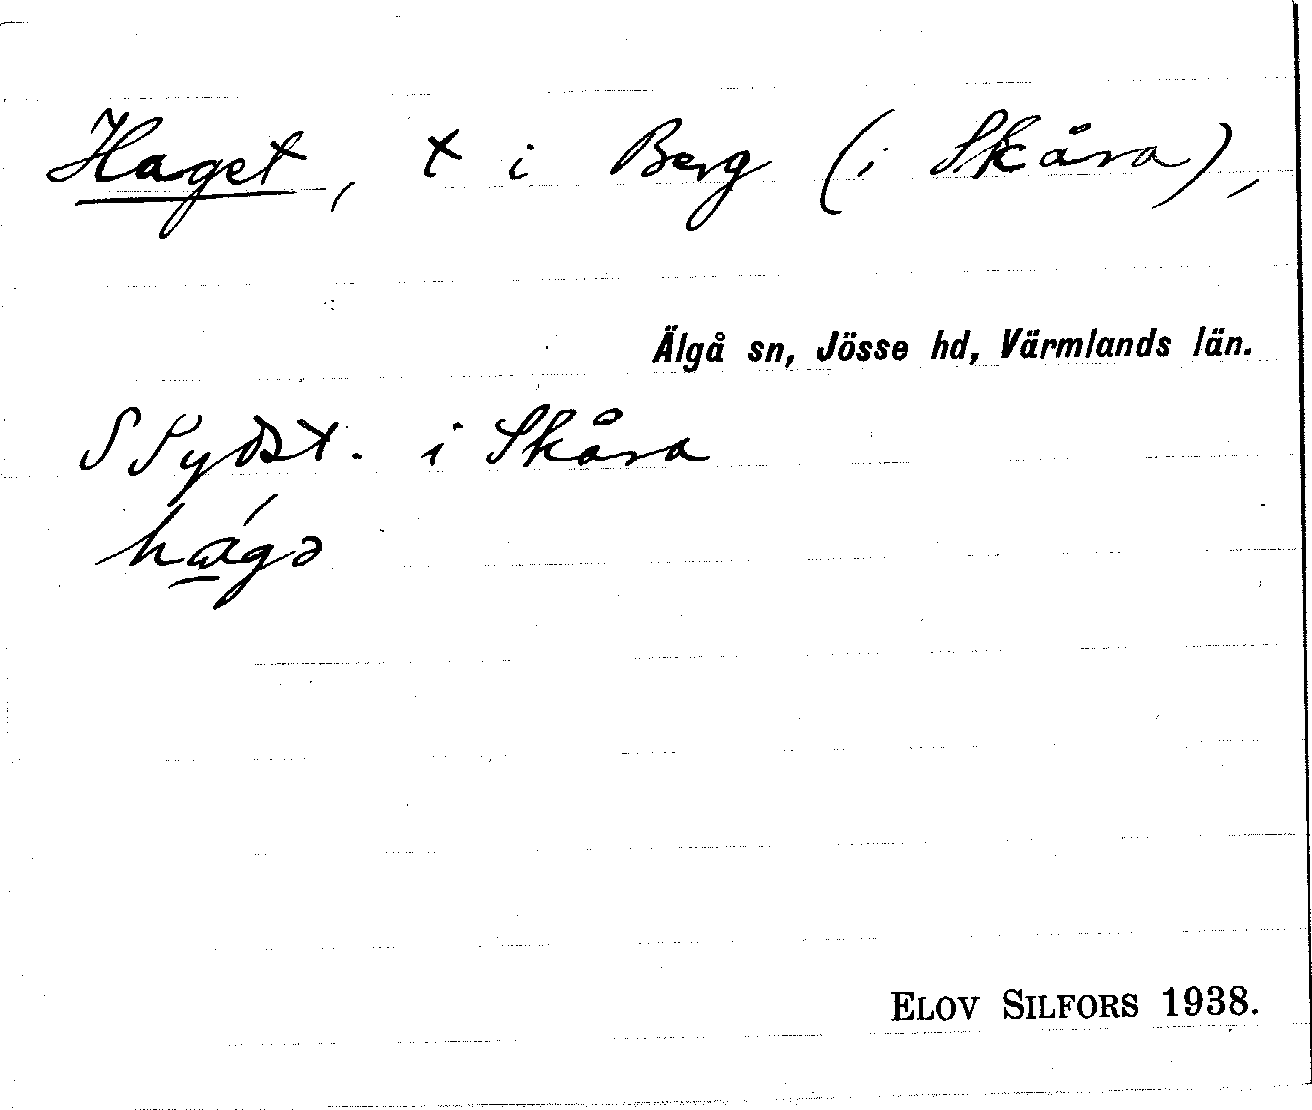 Haget, t i Berg (i Skåra),
Älgå sn, Jösse hd, Värmlands län.
i Skåra
hágə
ELOV SILFORS 1938.